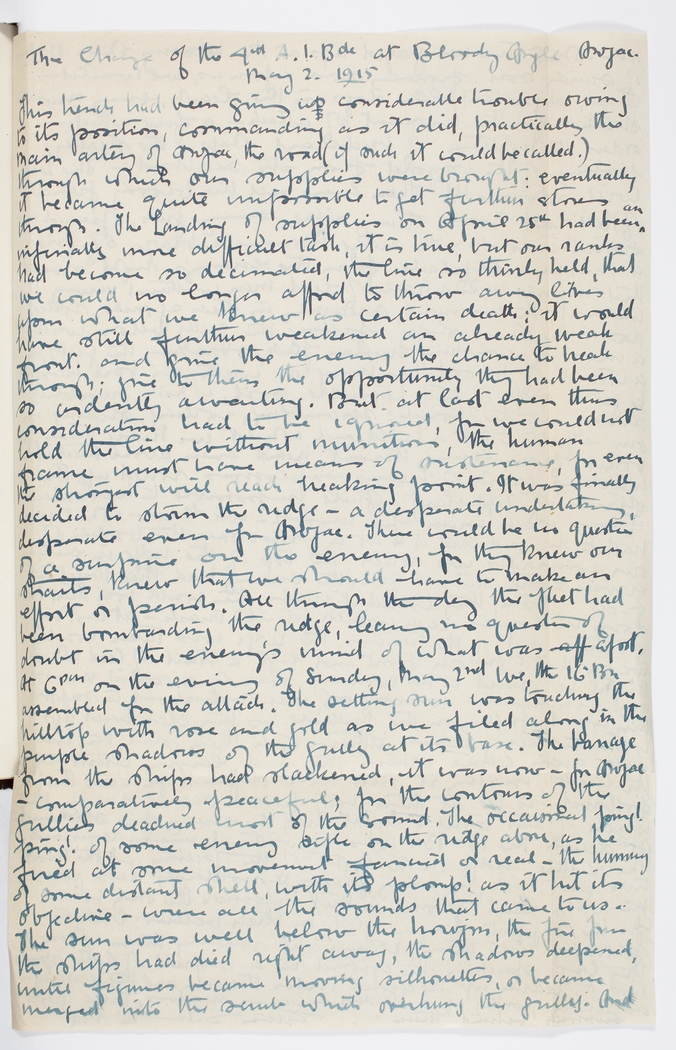 The Charge of the 4th A.I. Bde at Bloody Angle Anzac.
May 2. 1915
This trench had been giving up considerable trouble owing
to its position, commanding as it did, practically the
main artery of Anzac, the road (if such it could be called.)
through which our supplies were brought: eventually
it became quite impossible to get further stores
through. The Landing of supplies on April 25th had been an
infinitely more difficult task, it is true, but our ranks
had become so decimated, the line so thinly held, that
we could no longer afford to throw away lives
upon what we knew as certain death; it would
have still further weakened an already weak
front. and give the enemy the chance to break
through; give to them the opportunity they had been
so ardently awaiting. But at last even this
consideration had to be ignored, for we could not
hold the line without munitions, the human
frame must have means of sustenance, for even
the strongest will reach breaking point. It was finally
decided to storm the ridge - a desperate undertaking,
desperate even for Anzac. There could be no question
of a surprise on the enemy, for they knew our
straits, knew that we should have to make an
effort or perish. All through the day the fleet had
been bombarding the ridge, leaving no question of
doubt in the enemy's mind of what was aff afoot.
At 6pm on the evening of Sunday, May 2nd we, the 16 Bn
assembled for the attack. The setting sun was touching the
hilltop with rose and gold as we filed along in the
purple shadows of the gully at its base. The barrage
from the ships had slackened, it was now - for Anzac
- comparatively peaceful; for the contours of the
gullies deadened most of the sound. The occasional ping!
ping! of some enemy rifle on the ridge above, as he
fired at some movement fancied or real - the humming
of some distant shell, with its plomp! as it hit its
objective - were all the sounds that came to us.
The sun was well below the horizon, the fire from
the ships had died right away, the shadows deepened,
until figures became moving silhouettes, or became
merged into the scrub which overhung the gulley. And